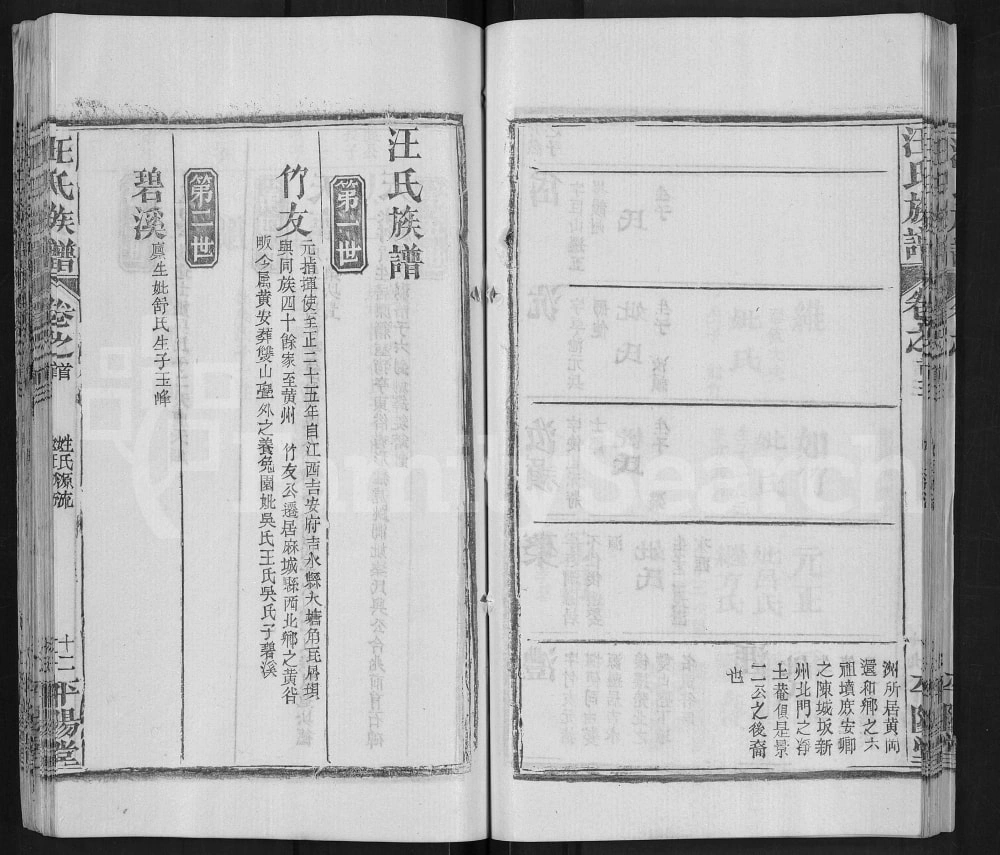 汪氏族譜
卷之首
平陽堂
渊所居黄岡
還和鄉之六
祖墳庶安鄉
之陳城坂新
州北門之淨
土菴俱是景
二公之後裔
也
汪氏族譜
第一世
竹友
元指揮使至正二十五年自江西吉安府吉水縣大塘角瓦屑垻
與同族四十餘家至黄州 竹友公遷居麻城縣西北鄉之黄谷
畈今属黄安葬雙山壘外之養兔園妣吳氏王氏吳氏子碧溪
第二世
碧溪
廩生妣舒氏生子玉峰
汪氏族譜
卷之首
姓氏源流
十二
平陽堂